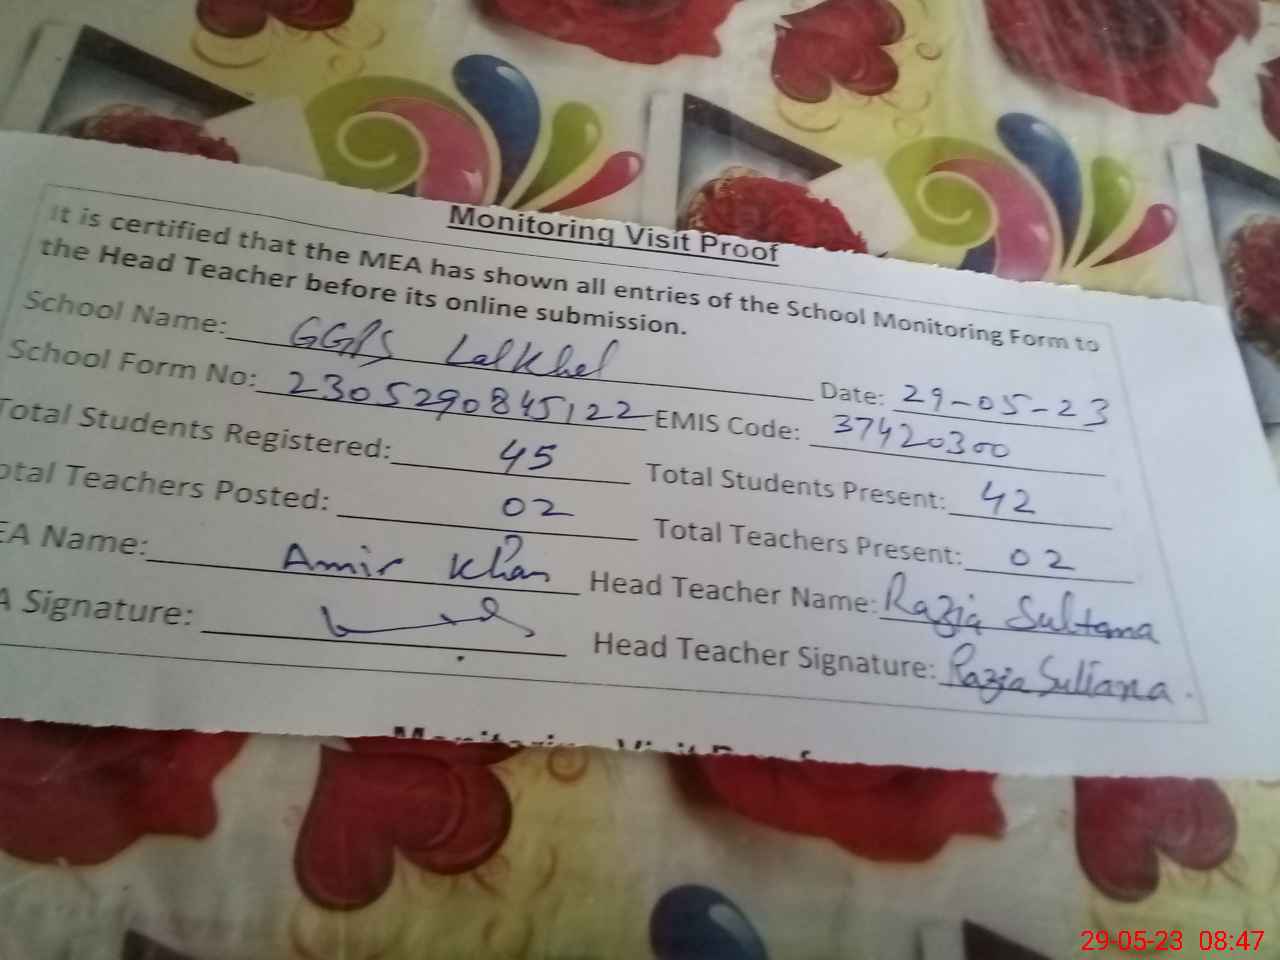 Monitoring Visit Proof
It is certified that the MEA has shown all entries of the School Monitoring Form to
the Head Teacher before its online submission.
School Name: GGPS Lalkhel Date: 29-05-23
School Form No: 2305290845122 EMIS Code: 37420300
Total Students Registered: 45 Total Students Present: 42
otal Teachers Posted: 02 Total Teachers Present: 02
EA Name: Amir Khan Head Teacher Name: Razia Sultana
A Signature: Head Teacher Signature: Razia Sultana
Monitoring Visit Proof
29-05-23 08:47